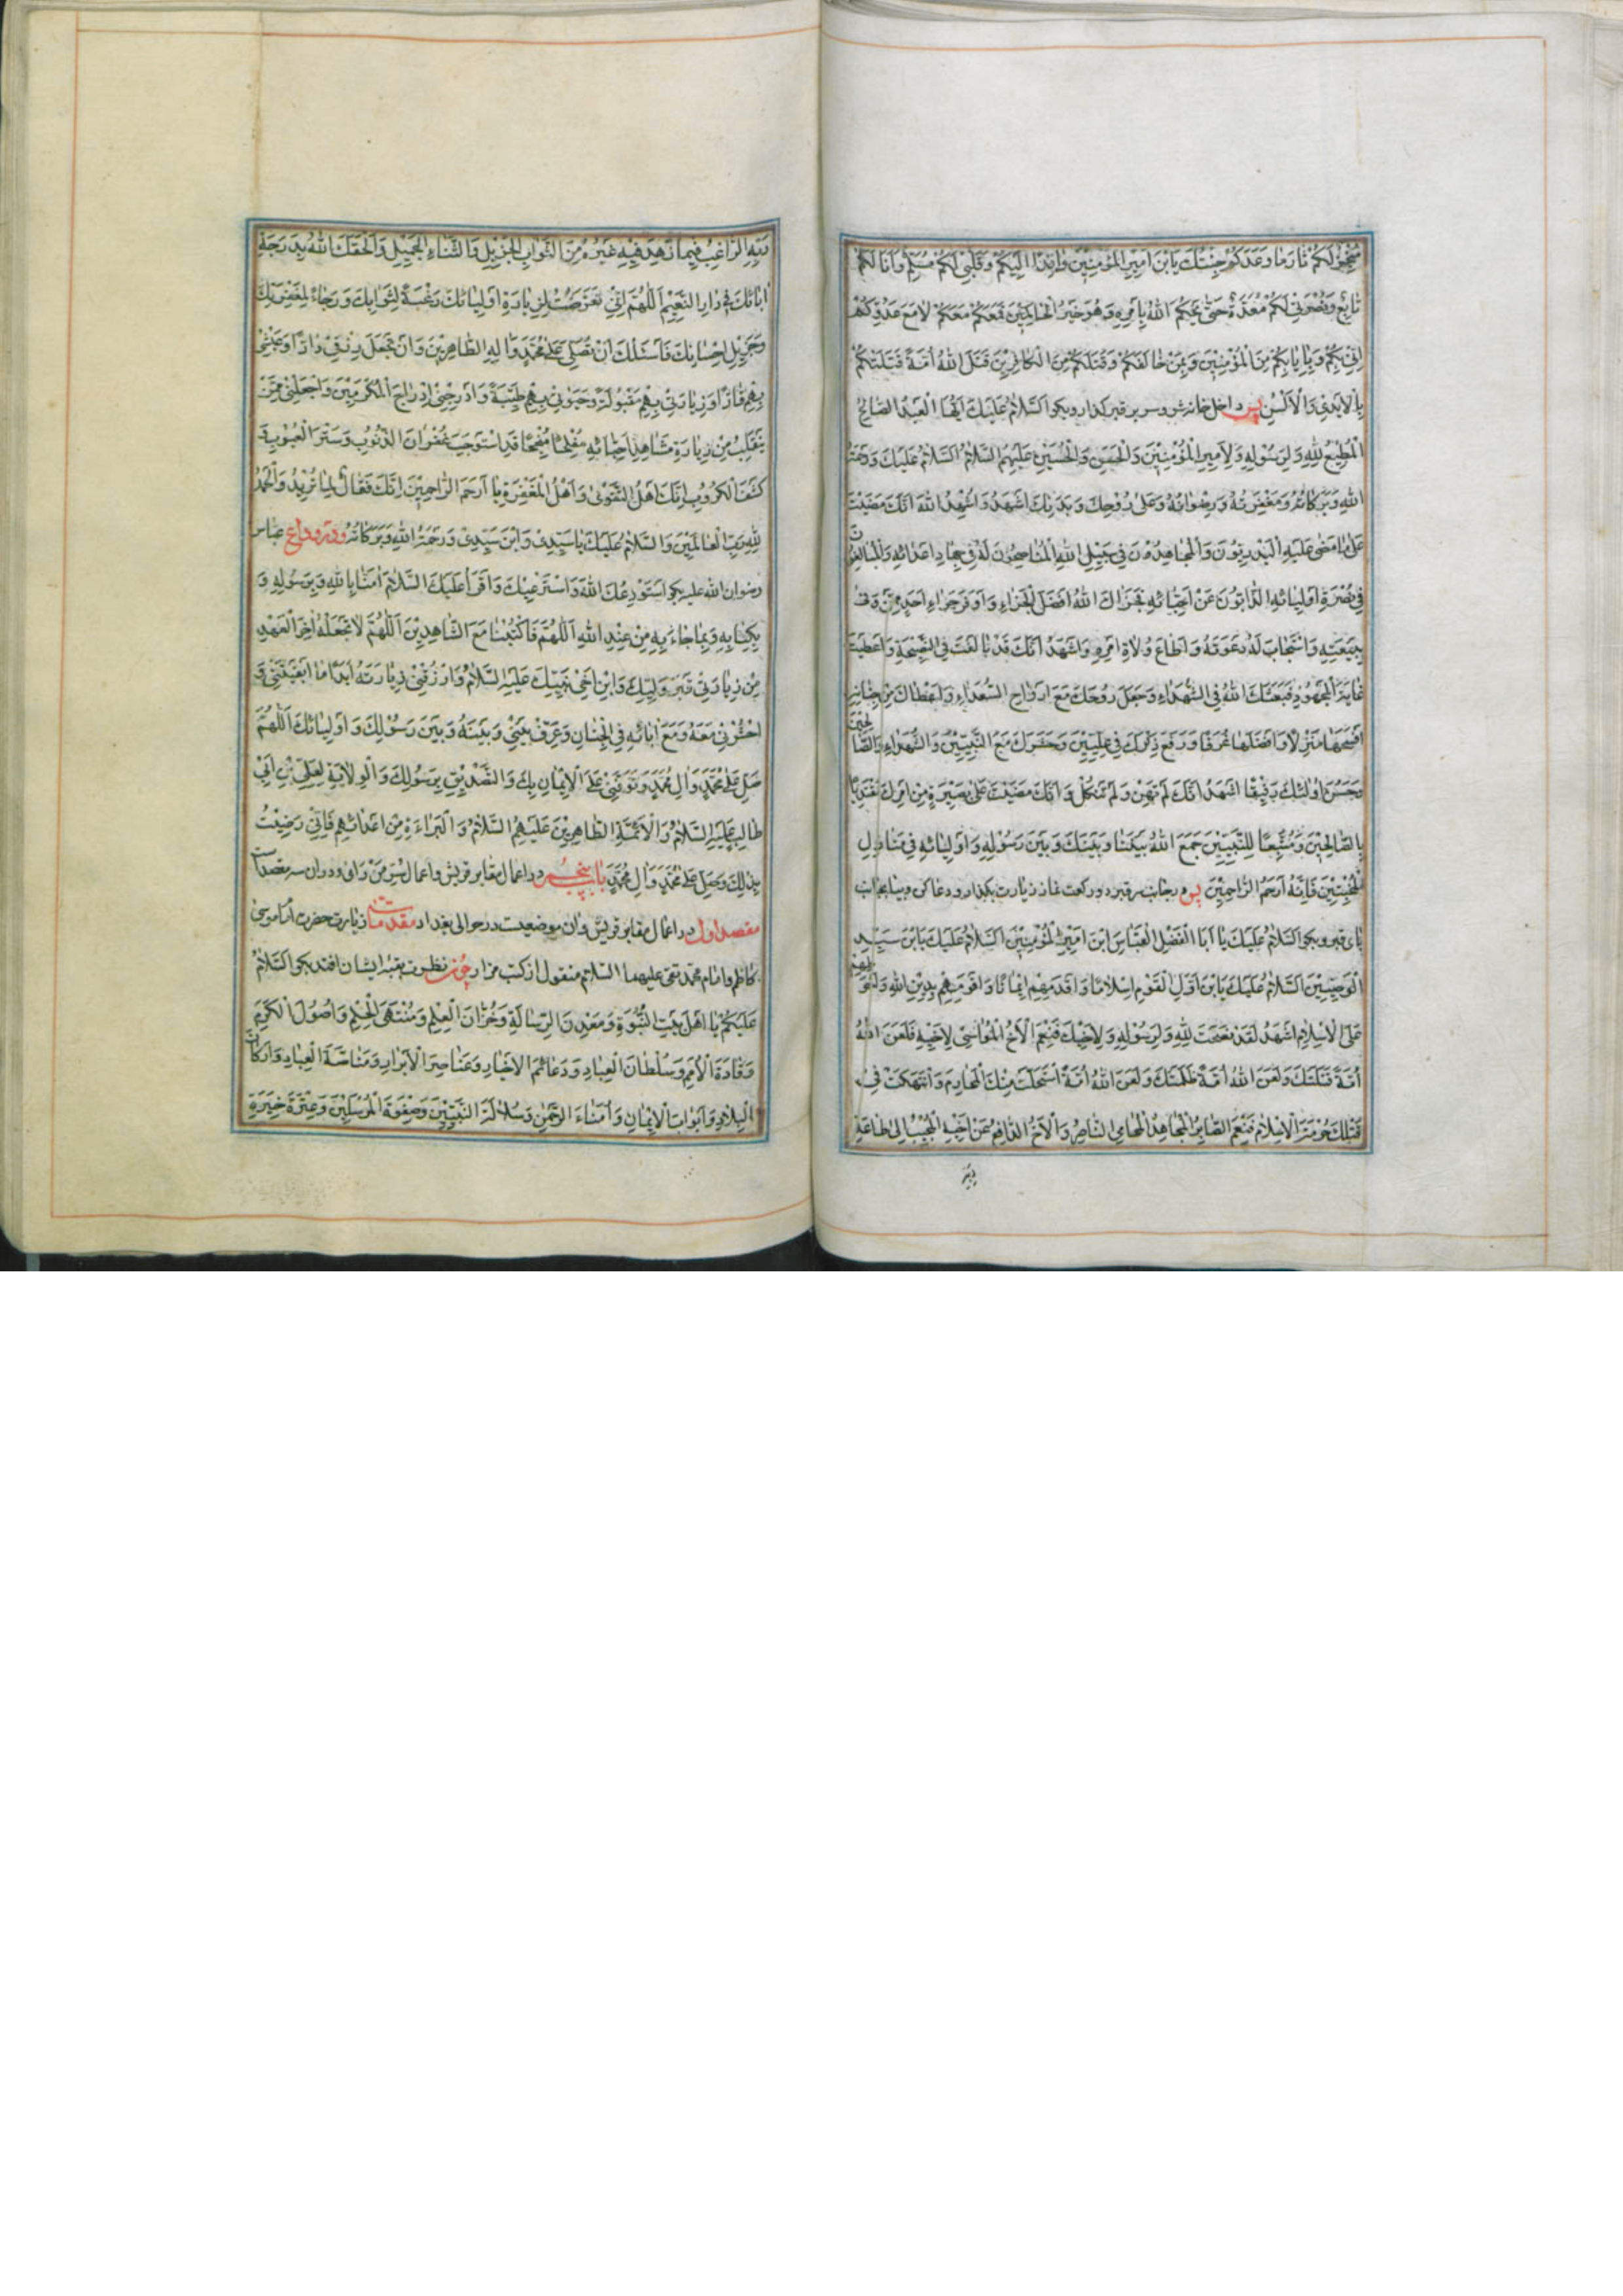 مُنْجِزٌ لَكُمْ مٰا وَعَدَكُمْ جِئْتُكَ يَابْنَ اَمِيرِ الْمُؤْمِنِينَ وٰافِدًا اِلَيْكُمْ وَقَلْبِي لَكُمْ مُسَلِّمٌ وَاَنَا لَكُمْ
تٰابِعٌ وَنُصْرَتِي لَكُمْ مُعَدَّةٌ حَتّٰى يَحْكُمَ اللّٰهُ بِاَمْرِهِ وَهُوَ خَيْرُ الْحٰاكِمِينَ فَمَعَكُمْ مَعَكُمْ لاٰ مَعَ عَدُوِّكُمْ
اِنِّي بِكُمْ وَبِاِيٰابِكُمْ مِنَ الْمُؤْمِنِينَ وَبِمَنْ خٰالَفَكُمْ وَقَتَلَكُمْ مِنَ الْكٰافِرِينَ قَتَلَ اللّٰهُ اُمَّةً قَتَلَتْكُمْ
بِالْاَيْدِي وَالْاَلْسُنِ پس داخل خانه شو و سر بر قبر گذار و بگو اَلسَّلاٰمُ عَلَيْكَ اَيُّهَا الْعَبْدُ الصّٰالِحُ
الْمُطِيعُ لِلّٰهِ وَلِرَسُولِهِ وَلِاَمِيرِ الْمُؤْمِنِينَ وَالْحَسَنِ وَالْحُسَيْنِ عَلَيْهِمُ السَّلاٰمُ اَلسَّلاٰمُ عَلَيْكَ وَرَحْمَةُ
اللّٰهِ وَبَرَكٰاتُهُ وَمَغْفِرَتُهُ وَرِضْوٰانُهُ وَعَلٰى رُوحِكَ وَبَدَنِكَ اَشْهَدُ وَاُشْهِدُ اللّٰهَ اَنَّكَ مَضَيْتَ
عَلٰى مٰا مَضٰى عَلَيْهِ الْبَدْرِيُّونَ وَالْمُجٰاهِدُونَ فِي سَبِيلِ اللّٰهِ الْمُنٰاصِحُونَ لَهُ فِي جِهٰادِ اَعْدٰائِهِ الْمُبٰالِغُونَ
فِي نُصْرَةِ اَوْلِيٰائِهِ الذّٰابُّونَ عَنْ اَحِبّٰائِهِ فَجَزٰاكَ اللّٰهُ اَفْضَلَ الْجَزٰاءِ وَاَوْفَرَ جَزٰاءِ اَحَدٍ مِمَّنْ وَفٰى
بِبَيْعَتِهِ وَاسْتَجٰابَ لَهُ دَعْوَتَهُ وَاَطٰاعَ وُلاٰةَ اَمْرِهِ وَاَشْهَدُ اَنَّكَ قَدْ بٰالَغْتَ فِي النَّصِيحَةِ وَاَعْطَيْتَ
غٰايَةَ الْمَجْهُودِ فَبَعَثَكَ اللّٰهُ فِي الشُّهَدٰاءِ وَجَعَلَ رُوحَكَ مَعَ اَرْوٰاحِ السُّعَدٰاءِ وَاَعْطٰاكَ مِنْ جِنٰانِهِ
اَفْسَحَهٰا مَنْزِلاً وَاَفْضَلَهٰا غُرَفًا وَرَفَعَ ذِكْرَكَ فِي عِلِّيِّينَ وَحَشَرَكَ مَعَ النَّبِيِّينَ وَالشُّهَدٰاءِ وَالصّٰالِحِينَ
وَحَسُنَ اُولٰئِكَ رَفِيقًا اَشْهَدُ اَنَّكَ لَمْ تَهِنْ وَلَمْ تَنْكُلْ وَاَنَّكَ مَضَيْتَ عَلٰى بَصِيرَةٍ مِنْ اَمْرِكَ مُقْتَدِيًا
بِالصّٰالِحِينَ وَمُتَّبِعًا لِلنَّبِيِّينَ جَمَعَ اللّٰهُ بَيْنَنٰا وَبَيْنَكَ وَبَيْنَ رَسُولِهِ وَاَوْلِيٰائِهِ فِي مَنٰازِلِ
الْمُخْبِتِينَ فَاِنَّهُ اَرْحَمُ الرّٰاحِمِينَ پس در جانب سر قبر دو ركعت نماز زيارت بگذار و دعا كن و بيا بجانب
پاى قبر و بگو اَلسَّلاٰمُ عَلَيْكَ يٰا اَبَا الْفَضْلِ الْعَبّٰاسَ ابْنَ اَمِيرِ الْمُؤْمِنِينَ اَلسَّلاٰمُ عَلَيْكَ يَابْنَ سَيِّدِ
الْوَصِيِّينَ اَلسَّلاٰمُ عَلَيْكَ يَابْنَ اَوَّلِ الْقَوْمِ اِسْلاٰمًا وَاَقْدَمِهِمْ اِيمٰانًا وَاَقْوَمِهِمْ بِدِينِ اللّٰهِ وَاَحْوَطِهِمْ
عَلَى الْاِسْلاٰمِ اَشْهَدُ لَقَدْ نَصَحْتَ لِلّٰهِ وَلِرَسُولِهِ وَلِاَخِيكَ فَنِعْمَ الْاَخُ الْمُوٰاسِي لِاَخِيهِ فَلَعَنَ اللّٰهُ
اُمَّةً قَتَلَتْكَ وَلَعَنَ اللّٰهُ اُمَّةً ظَلَمَتْكَ وَلَعَنَ اللّٰهُ اُمَّةً اسْتَحَلَّتْ مِنْكَ الْمَحٰارِمَ وَانْتَهَكَتْ فِي
قَتْلِكَ حُرْمَةَ الْاِسْلاٰمِ فَنِعْمَ الصّٰابِرُ الْمُجٰاهِدُ الْمُحٰامِي النّٰاصِرُ وَالْاَخُ الدّٰافِعُ عَنْ اَخِيهِ الْمُجِيبُ اِلٰى طٰاعَةِ
رَبِّهِ
رَبِّهِ الرّٰاغِبُ فِيمٰا زَهِدَ فِيهِ غَيْرُهُ مِنَ الثَّوٰابِ الْجَزِيلِ وَالثَّنٰاءِ الْجَمِيلِ وَاَلْحَقَكَ اللّٰهُ بِدَرَجَةِ
اٰبٰائِكَ فِي دٰارِ النَّعِيمِ اَللّٰهُمَّ اِنِّي تَعَرَّضْتُ لِزِيٰارَةِ اَوْلِيٰائِكَ رَغْبَةً لِثَوٰابِكَ وَرَجٰاءً لِمَغْفِرَتِكَ
وَجَزِيلِ اِحْسٰانِكَ فَاَسْئَلُكَ اَنْ تُصَلِّيَ عَلٰى مُحَمَّدٍ وَاٰلِهِ الطّٰاهِرِينَ وَاَنْ تَجْعَلَ رِزْقِي دٰارًّا وَعَيْشِي
بِهِمْ قٰارًّا وَزِيٰارَتِي بِهِمْ مَقْبُولَةً وَحَيٰوتِي بِهِمْ طَيِّبَةً وَاَدْرِجْنِي اِدْرٰاجَ الْمُكْرَمِينَ وَاجْعَلْنِي مِمَّنْ
يَنْقَلِبُ مِنْ زِيٰارَةِ مَشٰاهِدِ اَحِبّٰائِهِ مُفْلِحًا مُنْجِحًا قَدِ اسْتَوْجَبَ غُفْرٰانَ الذُّنُوبِ وَسَتْرَ الْعُيُوبِ وَ
كَشْفَ الْكُرُوبِ اِنَّكَ اَهْلُ التَّقْوٰى وَاَهْلُ الْمَغْفِرَةِ يٰا اَرْحَمَ الرّٰاحِمِينَ اِنَّكَ فَعّٰالٌ لِمٰا تُرِيدُ وَالْحَمْدُ
لِلّٰهِ رَبِّ الْعٰالَمِينَ وَالسَّلاٰمُ عَلَيْكَ يٰا سَيِّدِي وَابْنَ سَيِّدِي وَرَحْمَةُ اللّٰهِ وَبَرَكٰاتُهُ و در وداع عباس
رضوان الله عليه بگو اَسْتَوْدِعُكَ اللّٰهَ وَاَسْتَرْعِيكَ وَاَقْرَأُ عَلَيْكَ السَّلاٰمَ اٰمَنّٰا بِاللّٰهِ وَبِرَسُولِهِ وَ
بِكِتٰابِهِ وَبِمٰا جٰاءَ بِهِ مِنْ عِنْدِ اللّٰهِ اَللّٰهُمَّ فَاكْتُبْنٰا مَعَ الشّٰاهِدِينَ اَللّٰهُمَّ لاٰ تَجْعَلْهُ اٰخِرَ الْعَهْدِ
مِنْ زِيٰارَتِي قَبْرَ وَلِيِّكَ وَابْنِ اَخِي نَبِيِّكَ عَلَيْهِ السَّلاٰمُ وَارْزُقْنِي زِيٰارَتَهُ اَبَدًا مٰا اَبْقَيْتَنِي وَ
احْشُرْنِي مَعَهُ وَمَعَ اٰبٰائِهِ فِي الْجِنٰانِ وَعَرِّفْ بَيْنِي وَبَيْنَهُ وَبَيْنَ رَسُولِكَ وَاَوْلِيٰائِكَ اَللّٰهُمَّ
صَلِّ عَلٰى مُحَمَّدٍ وَاٰلِ مُحَمَّدٍ وَتَوَفَّنِي عَلَى الْاِيمٰانِ بِكَ وَالتَّصْدِيقِ بِرَسُولِكَ وَالْوِلاٰيَةِ لِعَلِيِّ بْنِ اَبِي
طٰالِبٍ عَلَيْهِ السَّلاٰمُ وَالْاَئِمَّةِ الطّٰاهِرِينَ عَلَيْهِمُ السَّلاٰمُ وَالْبَرٰاءَةِ مِنْ اَعْدٰائِهِمْ فَاِنِّي رَضِيتُ
بِذٰلِكَ وَصَلِّ عَلٰى مُحَمَّدٍ وَاٰلِ مُحَمَّدٍ باب پنجم در اعمال مقابر قريش و اعمال سُرَّ مَنْ رَاٰى و در ان سه مقصد است
مقصد اول در اعمال مقابر قريش و ان موضعيست در حوالى بغداد مقدمات زيارت حضرت امام موسى
كاظم و امام محمد تقى عليهما السلام منقول از كتب مزار چون نظرت بقبه ايشان افتد بگو اَلسَّلاٰمُ
عَلَيْكُمْ يٰا اَهْلَ بَيْتِ النُّبُوَّةِ وَمَعْدِنَ الرِّسٰالَةِ وَخُزّٰانَ الْعِلْمِ وَمُنْتَهَى الْحِلْمِ وَاُصُولَ الْكَرَمِ
وَقٰادَةَ الْاُمَمِ وَسُلْطٰانَ الْعِبٰادِ وَدَعٰائِمَ الْاَخْيٰارِ وَعَنٰاصِرَ الْاَبْرٰارِ وَسٰاسَةَ الْعِبٰادِ وَاَرْكٰانَ
الْبِلاٰدِ وَاَبْوٰابَ الْاِيمٰانِ وَاُمَنٰاءَ الرَّحْمٰنِ وَسُلاٰلَةَ النَّبِيِّينَ وَصَفْوَةَ الْمُرْسَلِينَ وَعِتْرَةَ خِيَرَةِ